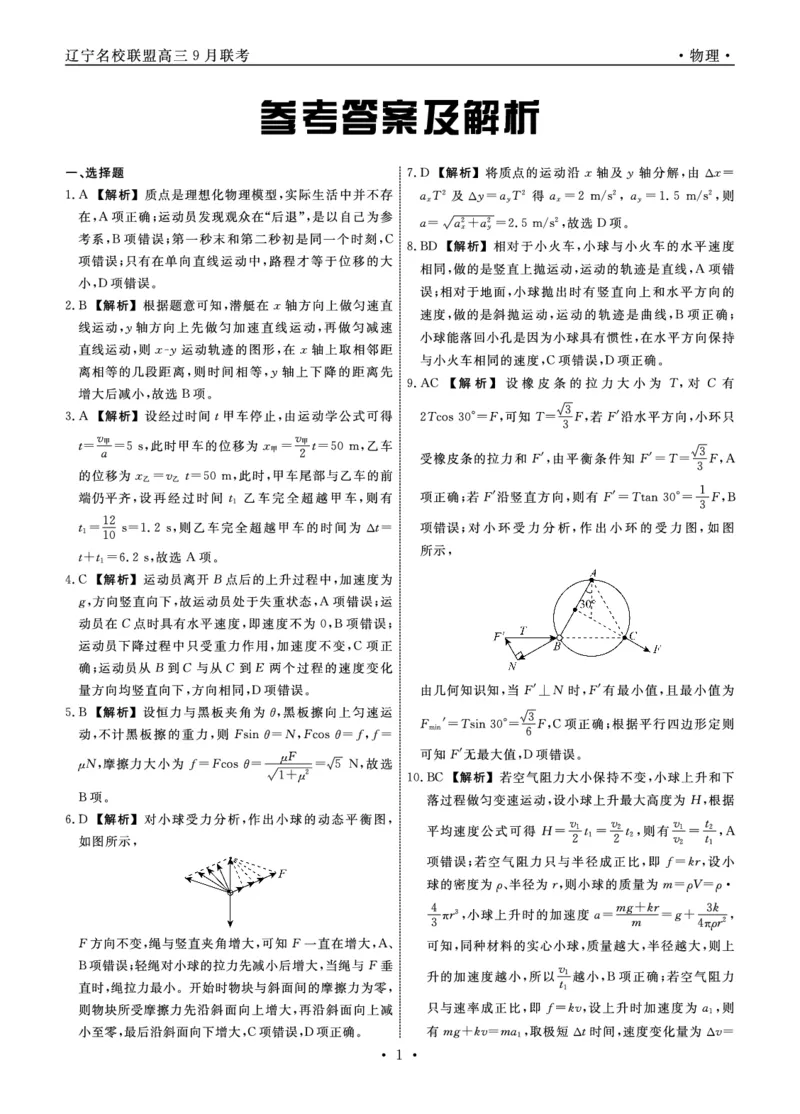 辽宁名校联盟高三 9 月联考
·物理·
参考答案及解析
一、选择题
1. A 【解析】质点是理想化物理模型,实际生活中并不存
在,A 项正确;运动员发现观众在“后退”,是以自己为参
考系,B 项错误;第一秒末和第二秒初是同一个时刻,C
项错误;只有在单向直线运动中,路程才等于位移的大
小,D 项错误。
2. B 【解析】根据题意可知,潜艇在 x 轴方向上做匀速直
线运动,y 轴方向上先做匀加速直线运动,再做匀减速
直线运动,则 x-y 运动轨迹的图形,在 x 轴上取相邻距
离相等的几段距离,则时间相等,y 轴上下降的距离先
增大后减小,故选 B 项。
3. A 【解析】设经过时间 t 甲车停止,由运动学公式可得
t=v甲/a=5 s,此时甲车的位移为 x甲=v甲/2 t=50 m,乙车
的位移为 x乙=v乙 t=50 m,此时,甲车尾部与乙车的前
端仍平齐,设再经过时间 t₁ 乙车完全超越甲车,则有
t₁=12/10 s=1.2 s,则乙车完全超越甲车的时间为 Δt=
t+t₁=6.2 s,故选 A 项。
4. C 【解析】运动员离开 B 点后的上升过程中,加速度为
g,方向竖直向下,故运动员处于失重状态,A 项错误;运
动员在 C 点时具有水平速度,即速度不为 0,B 项错误;
运动员下降过程中只受重力作用,加速度不变,C 项正
确;运动员从 B 到 C 与从 C 到 E 两个过程的速度变化
量方向均竖直向下,方向相同,D 项错误。
5. B 【解析】设恒力与黑板夹角为 θ,黑板擦向上匀速运
动,不计黑板擦的重力,则 Fsin θ=N,Fcos θ=f,f=
μN,摩擦力大小为 f=Fcos θ=μF/√(1+μ²)=√5 N,故选
B 项。
6. D 【解析】对小球受力分析,作出小球的动态平衡图,
如图所示,
F
F 方向不变,绳与竖直夹角增大,可知 F 一直在增大,A、
B 项错误;轻绳对小球的拉力先减小后增大,当绳与 F 垂
直时,绳拉力最小。开始时物块与斜面间的摩擦力为零,
则物块所受摩擦力先沿斜面向上增大,再沿斜面向上减
小至零,最后沿斜面向下增大,C 项错误,D 项正确。
7. D 【解析】将质点的运动沿 x 轴及 y 轴分解,由 Δx=
aₓT² 及 Δy=a_yT² 得 aₓ=2 m/s²,a_y=1.5 m/s²,则
a=√(aₓ²+a_y²)=2.5 m/s²,故选 D 项。
8. BD 【解析】相对于小火车,小球与小火车的水平速度
相同,做的是竖直上抛运动,运动的轨迹是直线,A 项错
误;相对于地面,小球抛出时有竖直向上和水平方向的
速度,做的是斜抛运动,运动的轨迹是曲线,B 项正确;
小球能落回小孔是因为小球具有惯性,在水平方向保持
与小火车相同的速度,C 项错误,D 项正确。
9. AC 【解析】设橡皮条的拉力大小为 T,对 C 有
2Tcos 30°=F,可知 T=√3/3 F,若 F′沿水平方向,小环只
受橡皮条的拉力和 F′,由平衡条件知 F′=T=√3/3 F,A
项正确;若 F′沿竖直方向,则有 F′=Ttan 30°=1/3 F,B
项错误;对小环受力分析,作出小环的受力图,如图
所示,
A
30°
F′ T B C F
N
由几何知识知,当 F′⊥N 时,F′有最小值,且最小值为
Fmin′=Tsin 30°=√3/6 F,C 项正确;根据平行四边形定则
可知 F′无最大值,D 项错误。
10. BC 【解析】若空气阻力大小保持不变,小球上升和下
落过程做匀变速运动,设小球上升最大高度为 H,根据
平均速度公式可得 H=v₁/2 t₁=v₂/2 t₂,则有 v₁/v₂=t₂/t₁,A
项错误;若空气阻力只与半径成正比,即 f=kr,设小
球的密度为 ρ、半径为 r,则小球的质量为 m=ρV=ρ·
4/3 πr³,小球上升时的加速度 a=(mg+kr)/m=g+3k/(4πρr²),
可知,同种材料的实心小球,质量越大,半径越大,则上
升的加速度越小,所以 v₁/t₁ 越小,B 项正确;若空气阻力
只与速率成正比,即 f=kv,设上升时加速度为 a₁,则
有 mg+kv=ma₁,取极短 Δt 时间,速度变化量为 Δv=
· 1 ·